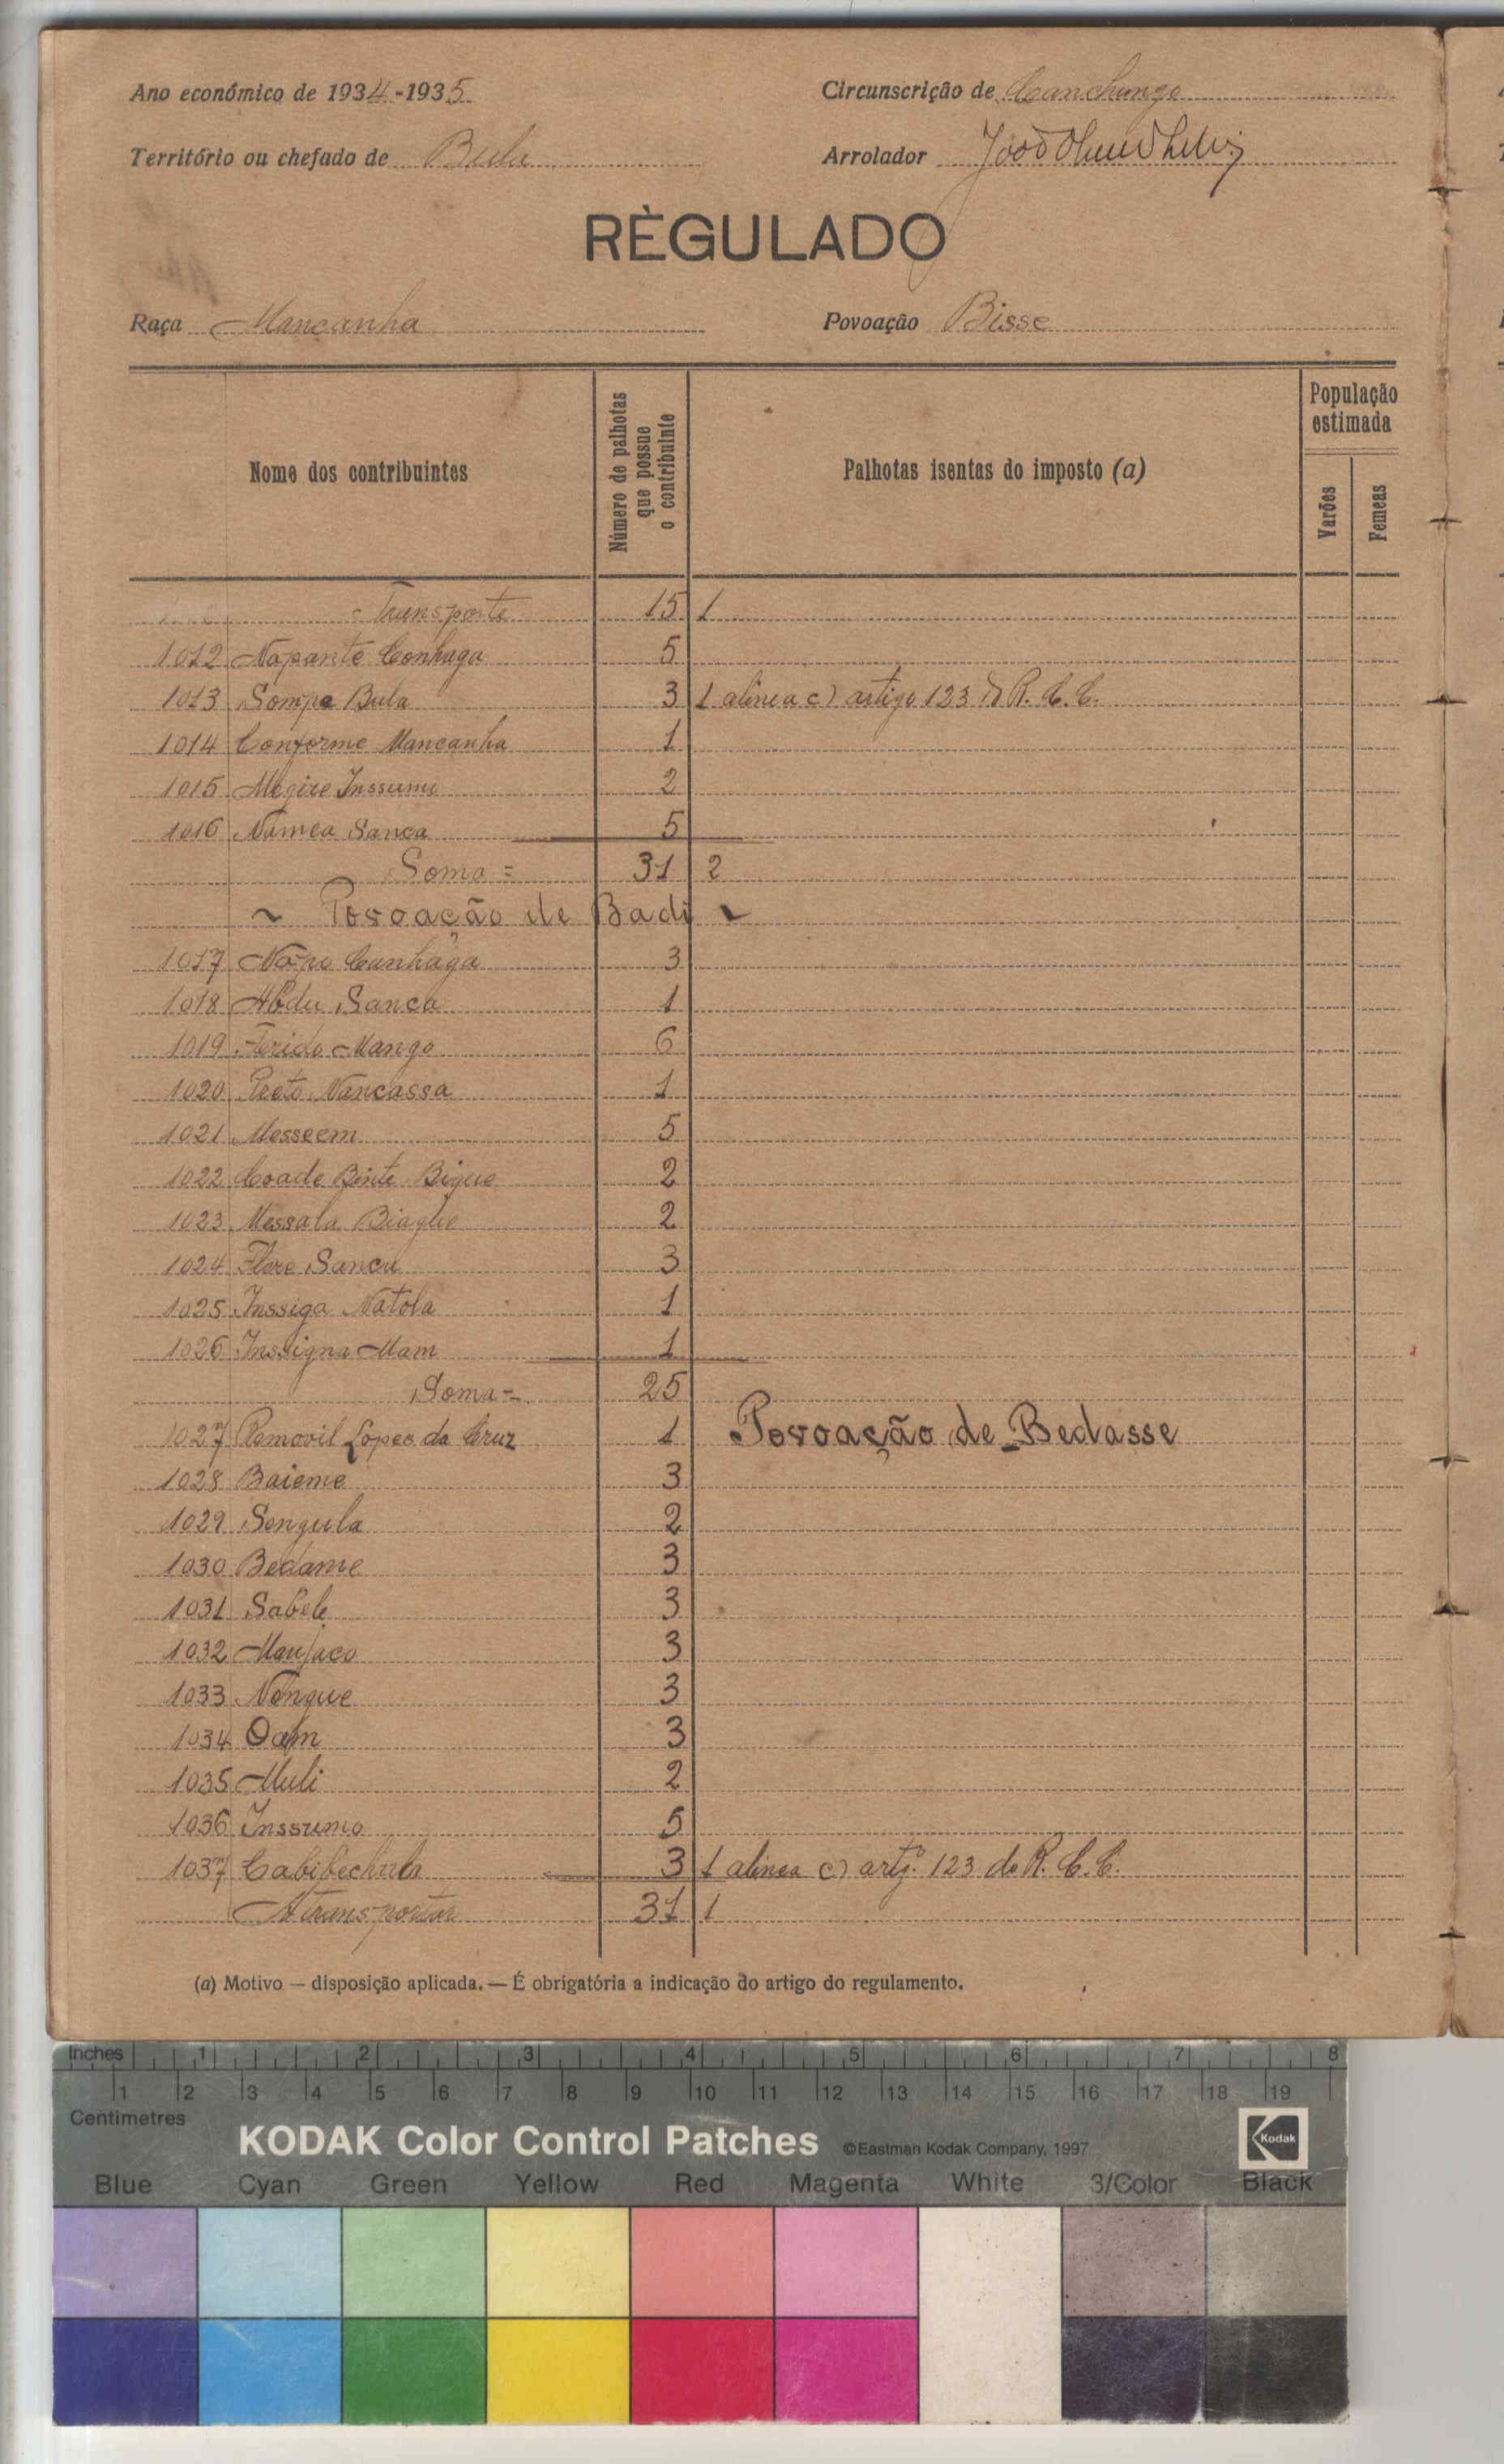 Ano económico de 1934-1935
Circunscrição de Canchungo
Território ou chefado de Bula
Arrolador
RÈGULADO
Raça Mancanha
Povoação Bisse
Nome dos contribuintes
Número de palhotas que possue o contribuinte
Palhotas isentas do imposto (a)
População estimada
Varões
Femeas
Transporte 15 1
1012 Napante Conhaga 5
1013 Sompe Bula 3 1 alinea c) artigo 123 do R. C. C.
1014 Conforme Mancanha 1
1015 Megire Inssumo 2
1016 Namea Sanca 5
Soma = 31 2
~ Povoação de Badi ~
1017 Napo Canhaga 3
1018 Abdu Sanca 1
1019 Ferido Mango 6
1020 Peeto Nancassa 1
1021 Messeem 5
1022 Coade Binte Bigue 2
1023 Messala Biague 2
1024 Flore Sanca 3
1025 Inssiga Natola 1
1026 Inssigna Mam 1
Soma = 25
1027 Lopes da Cruz 1 Povoação de Bedasse
1028 Baieme 3
1029 Sengula 2
1030 Bedame 3
1031 Sabele 3
1032 Manjaco 3
1033 Nongue 3
1034 Oam 3
1035 Muli 2
1036 Inssumo 5
1037 3 1 alinea c) artgº. 123 do R. C. C.
A transportar 31 1
(a) Motivo — disposição aplicada. — É obrigatória a indicação do artigo do regulamento.
Inches 1 2 3 4 5 6 7 8
1 2 3 4 5 6 7 8 9 10 11 12 13 14 15 16 17 18 19
Centimetres
KODAK Color Control Patches ©Eastman Kodak Company, 1997 Kodak
Blue Cyan Green Yellow Red Magenta White 3/Color Black